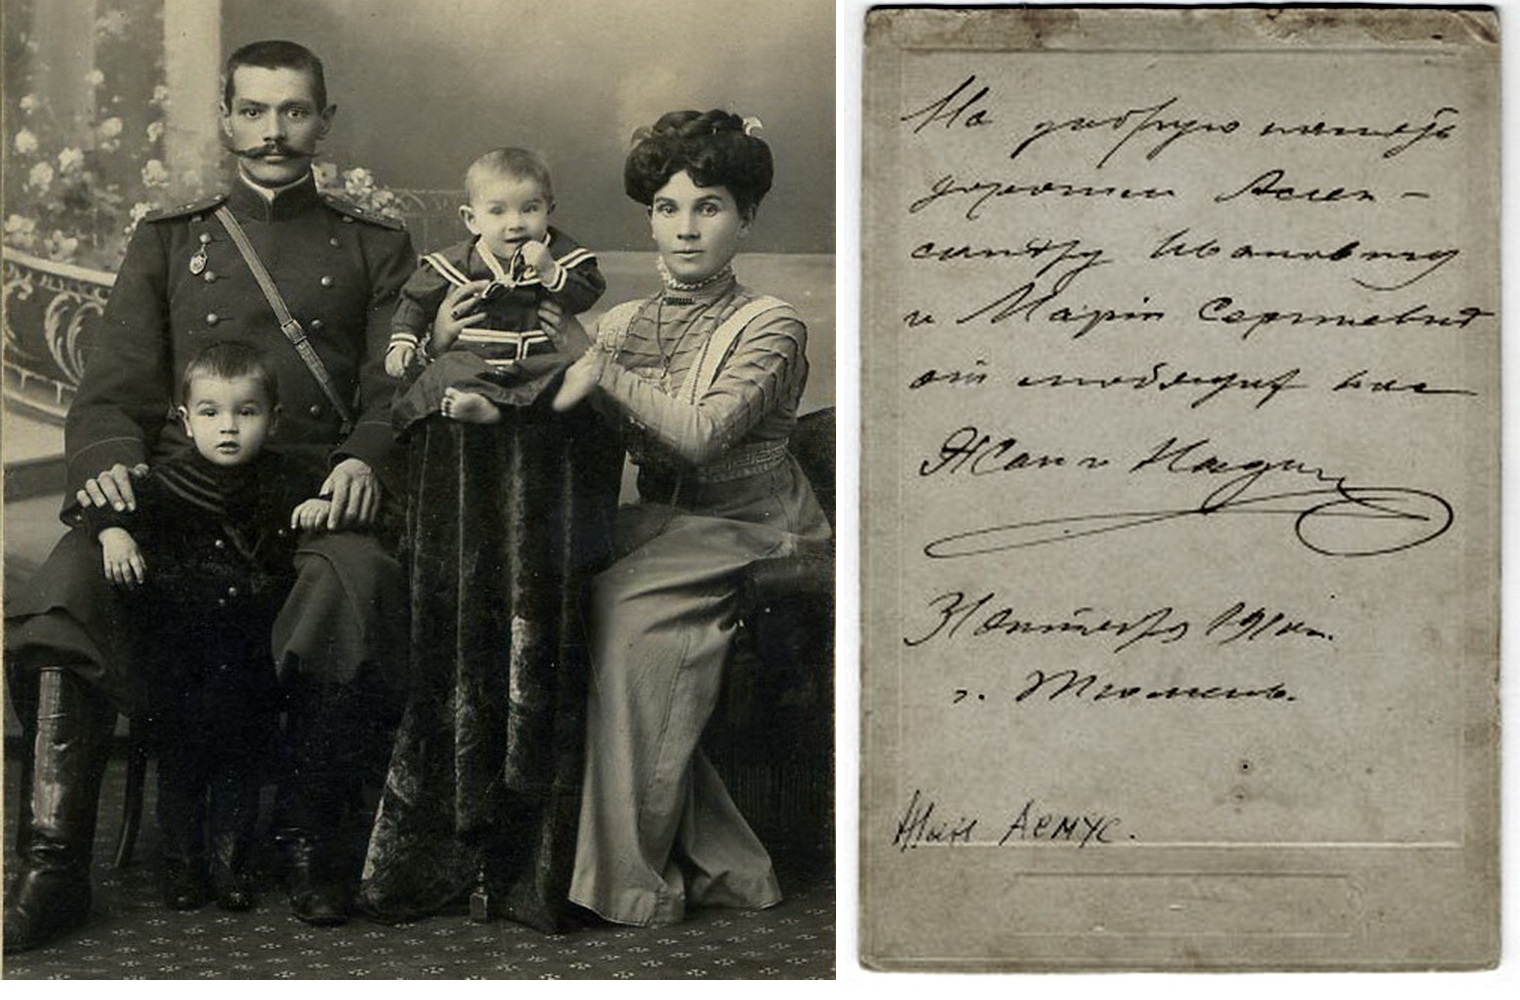 На добрую память
дорогим Алек-
сандру Ивановичу
и Маріи Сергѣевнѣ
от любящих вас
Жан и Надин
3 Октября 191
г. Тюмень.
Жан Асмус.